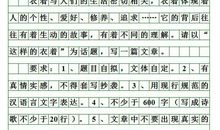 衣着与人们的生活密切相关，衣着体现着
人的个性、爱好、修养、追求……它的背后往
往有着生动的故事，有着不同的理解。请以“这
样的衣着”为话题，写一篇文章。
要求：1、题目自拟，文体自定。2、有
真情实感，不得套写抄袭。3、用现行规范的
汉语言文字表达。4、不少于600字（写成诗
歌不少于20行）。5、文章中不要出现真实